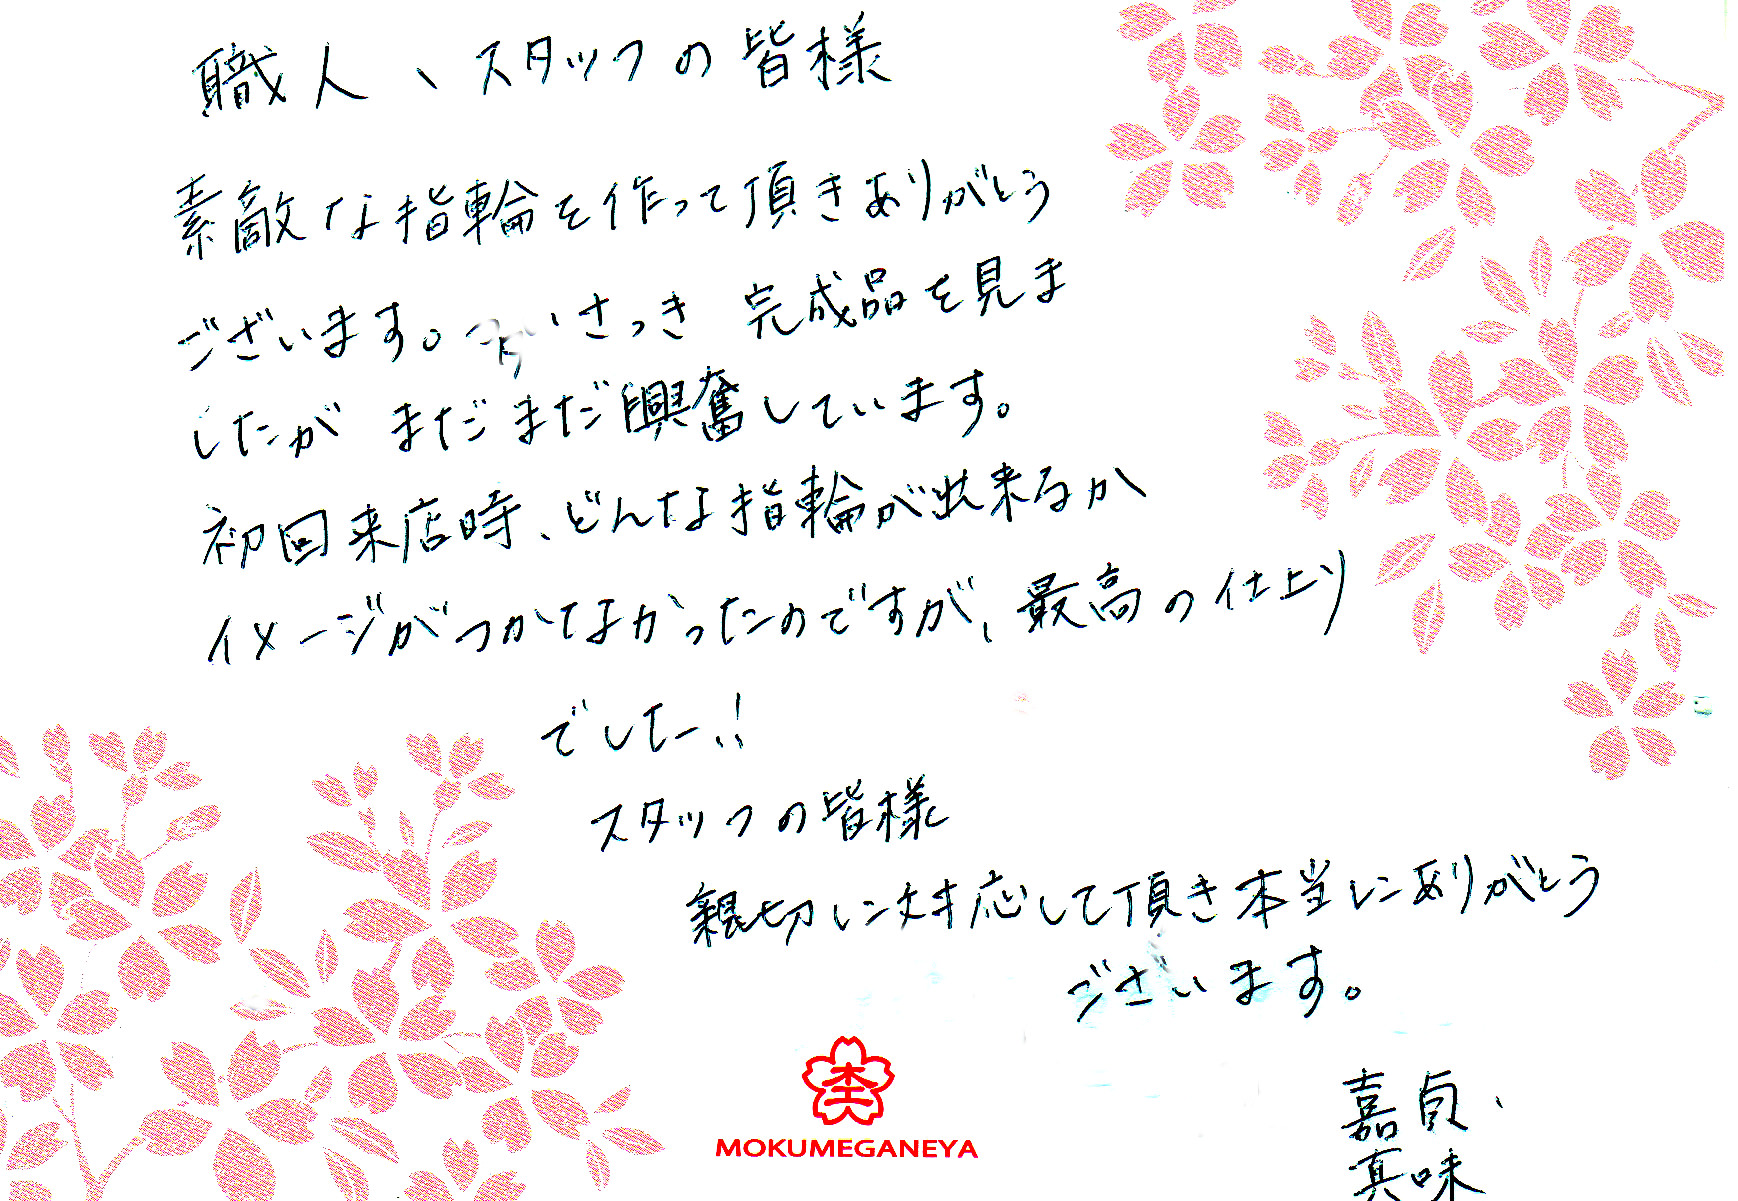 職人、スタッフの皆様
素敵な指輪を作って頂きありがとう
ございます。さっき 完成品を見ま
したが まだまだ興奮しています。
初回来店時、どんな指輪が出来るか
イメージがつかなかったのですが、最高の仕上り
でしたー!!
スタッフの皆様
親切に対応して頂き本当にありがとう
ございます。
嘉貞、
真味
MOKUMEGANEYA